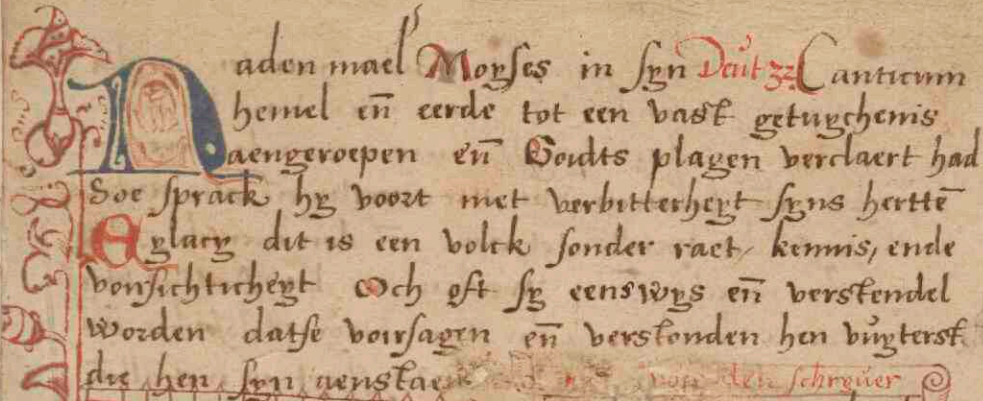 Naden mael Moyses in syn Deut 32 Canticum
hemel en̄ eerde tot een vast getuychenis
aengeroepen en̄ Goidts plagen verclaert had
Soe sprack hy voort met verbitterheyt syns herttē
Eylacy dit is een volck sonder raet, kennis, ende
vorsichticheyt Och oft sy eens wys en̄ verstendel
worden datse voirsagen en̄ verstonden hen vuyterst
die hen syn aenstaen von den schreuer